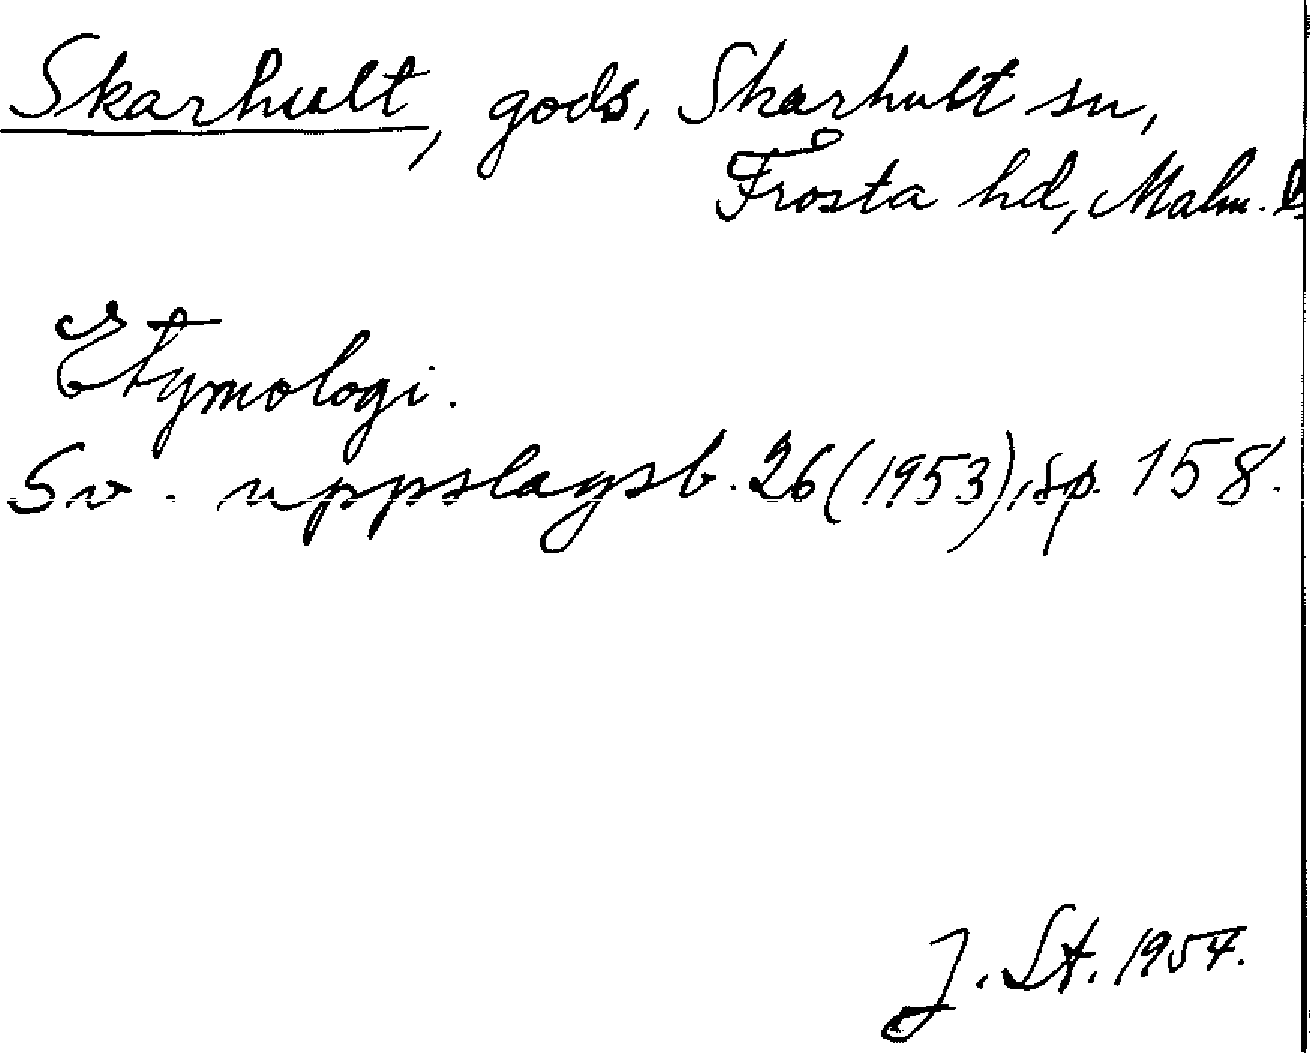 Skarhult, gods, Skarhult sn,
Frosta hd, Malm. l
Etymologi.
Sv. uppslagsb. 26 (1953), sp. 158.
J. St. 1954.